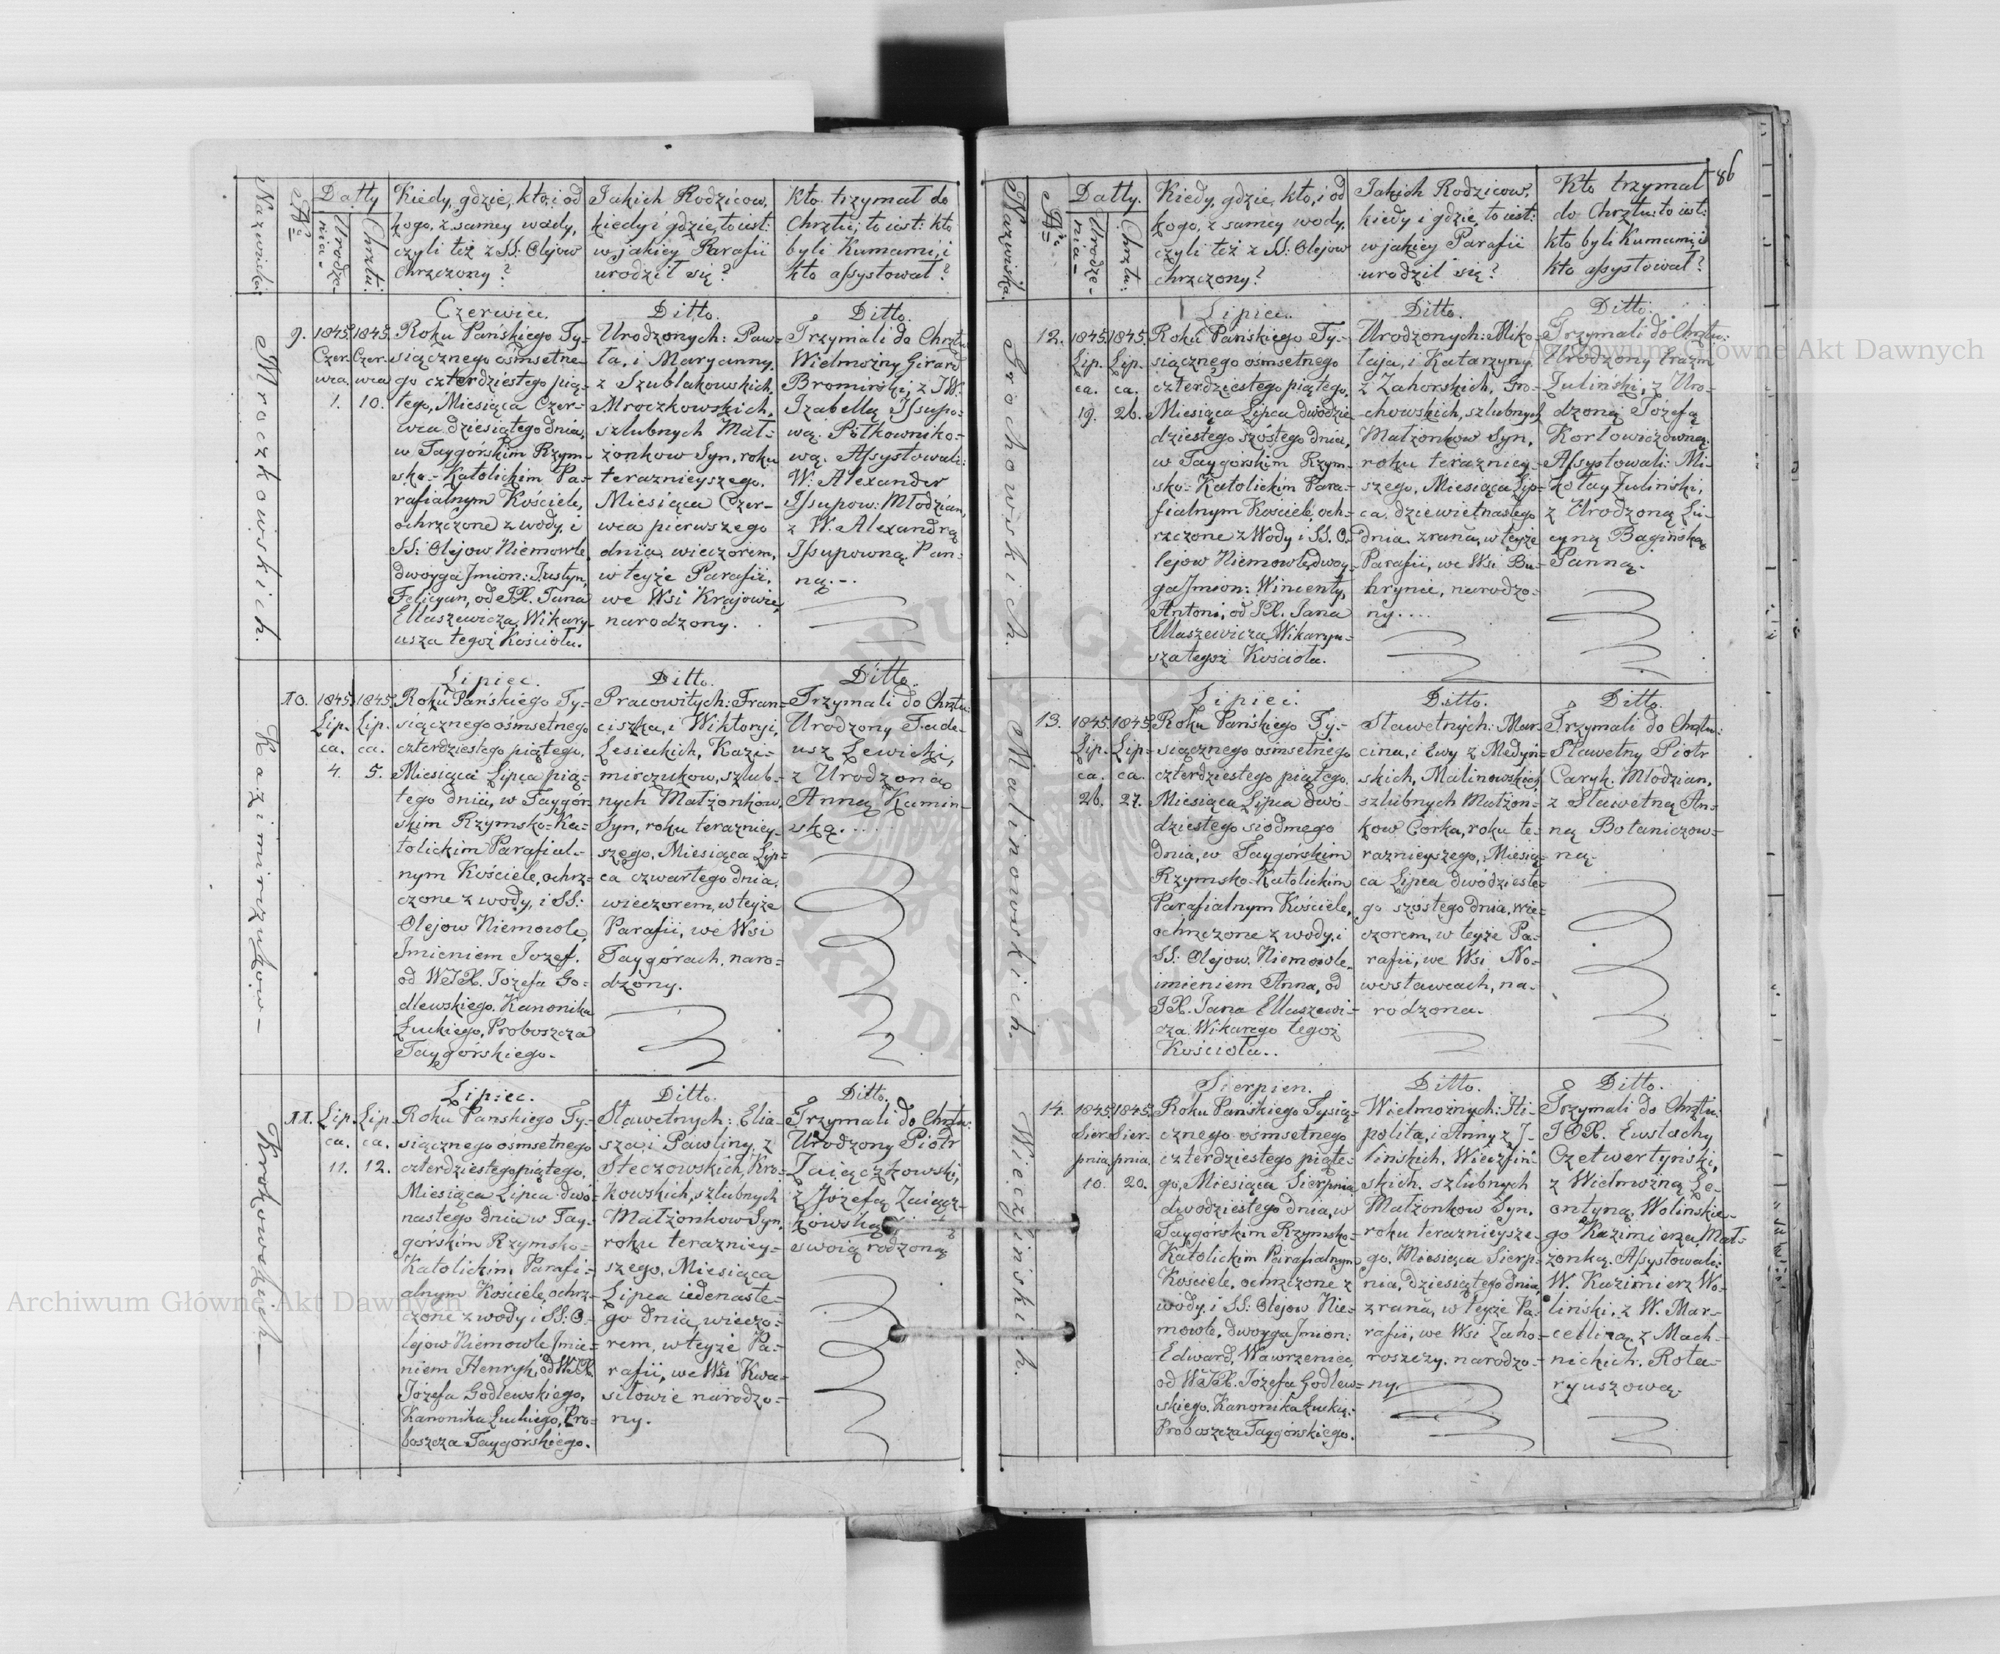 Nazwiska.
№
Datty
Urodze-
nia-
Chrztu:
Kiedy, gdzie, kto, i od
kogo, z samey wody,
czyli też z SS: Olejow
chrzczony?
Jakich Rodzicow,
kiedy i gdzie, to iest:
w jakiey Parafii
urodził się?
Kto trzymał do
Chrztu, to iest: kto
byli Kumami, i
kto assystował?
Mroczkowskich.
9.
1845.
Czer-
wca
1.
1845.
Czer-
wca
10.
Czerwiec.
Roku Pańskiego Ty-
siącznego ośmsetne-
go czterdziestego pią-
tego, Miesiąca Czer-
wca dziesiątego dnia,
w Taygórskim Rzym-
sko-Katolickim Pa-
rafialnym Kościele,
ochrzczone z wody, i
SS: Olejow Niemowle
dwoyga Jmion: Justyn,
Felicyan, od JX. Jana
Ellaszewicza, Wikary-
usza tegoż Kościoła.
Ditto.
Urodzonych: Paw-
ła, i Maryanny,
z Szublakowskich,
Mroczkowskich,
szlubnych Mał-
żonkow Syn, roku
teraznieyszego,
Miesiąca Czer-
wca pierwszego
dnia wieczorem,
w teyże Parafii,
we Wsi Krajowie,
narodzony.
Ditto.
Trzymali do Chrztu:
Wielmożny Girard
Bromirski, z JW.
Izabellą Jssupo-
wą. Półkowniko-
wą. Assystowali:
W. Alexander
Jssupow: Młodzian,
z W. Alexandrą
Jssupowną Pan-
ną.-.
Kazimirzukow-
10.
1845.
Lip-
ca.
4.
1845.
Lip-
ca.
5.
Lipiec.
Roku Pańskiego Ty-
siącznego ośmsetnego
czterdziestego piątego,
Miesiąca Lipca pią-
tego dnia, w Taygór-
skim Rzymsko-Ka-
tolickim Parafial-
nym Kościele, ochrz-
czone z wody, i SS:
Olejow Niemowle,
Jmieniem Jozef.
od WJX. Józefa Go-
dlewskiego, Kanonika
Łuckiego, Proboszcza
Taygórskiego.
Ditto.
Pracowitych: Fran-
ciszka, i Wiktoryi,
Lesieckich, Kazi-
mirczukow, szlub-
nych Małżonkow,
Syn, roku terazniey-
szego, Miesiąca Lip-
ca czwartego dnia,
wieczorem, w teyże
Parafii, we Wsi
Taygórach, naro-
dzony.
Ditto.
Trzymali do Chrztu:
Urodzony Tade-
usz Lewicki,
z Urodzoną
Anną Kamin-
ską.
Krokowskich-
11.
Lip-
ca.
11.
Lip-
ca.
12.
Lipiec.
Roku Pańskiego Ty-
siącznego ośmsetnego
czterdziestego piątego,
Miesiąca Lipca dwó-
nastego dnia w Tay-
gorskim Rzymsko-
Katolickim Parafi-
alnym Kościele, ochrz-
czone z wody i SS: O-
lejow Niemowle Jmie-
niem Henryk, od WJX.
Józefa Godlewskiego,
Kanonika Łuckiego, Pro-
boszcza Taygórskiego.
Ditto.
Sławetnych: Elia-
sza, i Pawliny, z
Steczowskich, Kro-
kowskich, szlubnych
Małżonkow Syn,
roku terazniey-
szego, Miesiąca
Lipca iedenaste-
go dnia, wieczo-
rem, w teyże Pa-
rafii, we Wsi Kwa-
siłowie narodzo-
ny.
Ditto.
Trzymali do Chrztu:
Urodzony Piotr
Zaiączkowski,
z Józefą Zaiącz-
kowską
swoią rodzoną
86
Nazwiska.
№
Datty.
Urodze-
nia-
Chrztu:
Kiedy, gdzie, kto, i od
kogo, z samey wody,
czyli też z SS: Olejow
chrzczony?
Jakich Rodzicow,
kiedy i gdzie, to iest:
w jakiey Parafii
urodził się?
Kto trzymał
do Chrztu, to iest:
kto byli Kumami, i
kto assystował?
Grochowskich.
12.
1845.
Lip-
ca.
19.
1845.
Lip-
ca.
26.
Lipiec.
Roku Pańskiego Ty-
siącznego ośmsetnego
czterdziestego piątego,
Miesiąca Lipca dwódzie-
dziestego szóstego dnia,
w Taygórskim Rzym-
sko-Katolickim Para-
fialnym Kościele, och-
rzczone z Wody i SS. O-
lejow Niemowle, dwoy-
ga Jmion: Wincenty,
Antoni, od JX. Jana
Ellaszewicza, Wikaryu-
sza tegoż Kościoła.
Ditto.
Urodzonych: Miko-
łaja, i Katarzyny,
z Zahorskich, Gro-
chowskich, szlubnych
Małżonkow Syn,
roku terazniey-
szego, Miesiąca Lip-
ca, dziewiętnastego
dnia zrana, w teyże
Parafii, we Wsi Bu-
hrynie, narodzo-
ny....
Ditto.
Trzymali do Chrztu:
Urodzony Erazm
Żuliński, z Uro-
dzoną Józefą
Korłowiczówną.
Assystowali: Mi-
kołay Żuliński,
z Urodzoną Lu-
cyną Bagińską
Panną.
Malinowskich.
13.
1845.
Lip-
ca.
26.
1845.
Lip-
ca.
27.
Lipiec.
Roku Pańskiego Ty-
siącznego ośmsetnego
czterdziestego piątego,
Miesiąca Lipca dwó-
dziestego siodmego
dnia, w Taygórskim
Rzymsko-Katolickim
Parafialnym Kościele,
ochrzczone z wody, i
SS: Olejow, Niemowle,
imieniem Anna, od
JX. Jana Ellaszewi-
cza, Wikarego tegoż
Kościoła..
Ditto.
Sławetnych: Mar-
cina, i Ewy z Medyń-
skich, Malinowskich,
szlubnych Małżon-
kow Corka, roku te-
raznieyszego, Miesią-
ca Lipca dwódzieste-
go szóstego dnia, wie-
czorem, w teyże Pa-
rafii, we Wsi No-
wostawcach, na-
rodzona.
Ditto.
Trzymali do Chrztu:
Sławetny Piotr
Caryk, Młodzian,
z Sławetną An-
ną Botaniczow-
ną.
Wieczfińskich.
14.
1845.
Sier-
pnia.
10.
1845.
Sier-
pnia.
20.
Sierpien.
Roku Pańskiego Tysią-
cznego ośmsetnego
czterdziestego piąte-
go, Miesiąca Sierpnia
dwodziestego dnia, w
Taygórskim Rzymsko-
Katolickim Parafialnym
Kościele, ochrzczone z
wody, i SS: Olejow Nie-
mowle, dwoyga Jmion:
Edward, Wawrzeniec,
od WJX. Józefa Godlew-
skiego, Kanonika Łucki:
Proboszcza Taygórskiego.
Ditto.
Wielmożnych: Hi-
polita, i Anny z J-
lińskich, Wieczfiń-
skich, szlubnych
Małżonkow Syn,
roku teraznieysze-
go, Miesiąca Sierp-
nia, dziesiątego dnia,
zrana, w teyże Pa-
rafii, we Wsi Zaho-
roszczy, narodzo-
ny.
Ditto.
Trzymali do Chrztu:
JOX. Eustachy
Czetwertyński,
z Wielmożną Le-
ontyną, Wolińskie-
go Kazimierza, Mał-
żonką. Assystowali:
W. Kazimierz Wo-
liński, z W. Mar-
celliną z Mach-
nickich, Rota-
ryuszową.
Archiwum Główne Akt Dawnych
Archiwum Główne Akt Dawnych